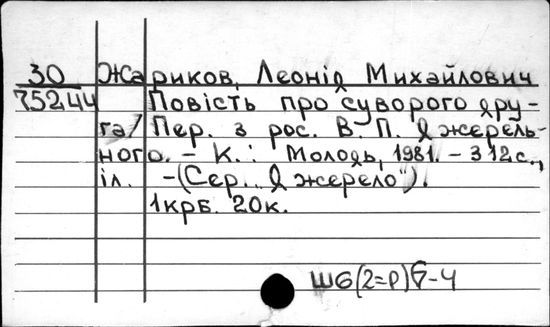 30 Жариков, Леонід Михайлович
75244 Повість про суворого дру-
га/ Пер. з рос. В. П. Джерель-
ного. – К.: Молодь, 1981. – 312с.,
іл. –(Сер. „Джерело").
1крб. 20к.
Ш6(2=Р)7-4